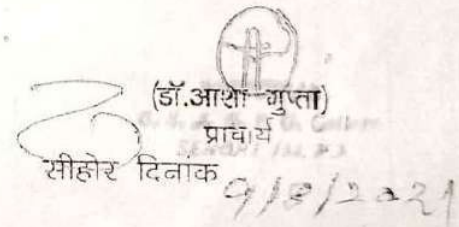 (डॉ.आशा गुप्ता)
प्राचार्य
सीहोर दिनांक 9/8/2021